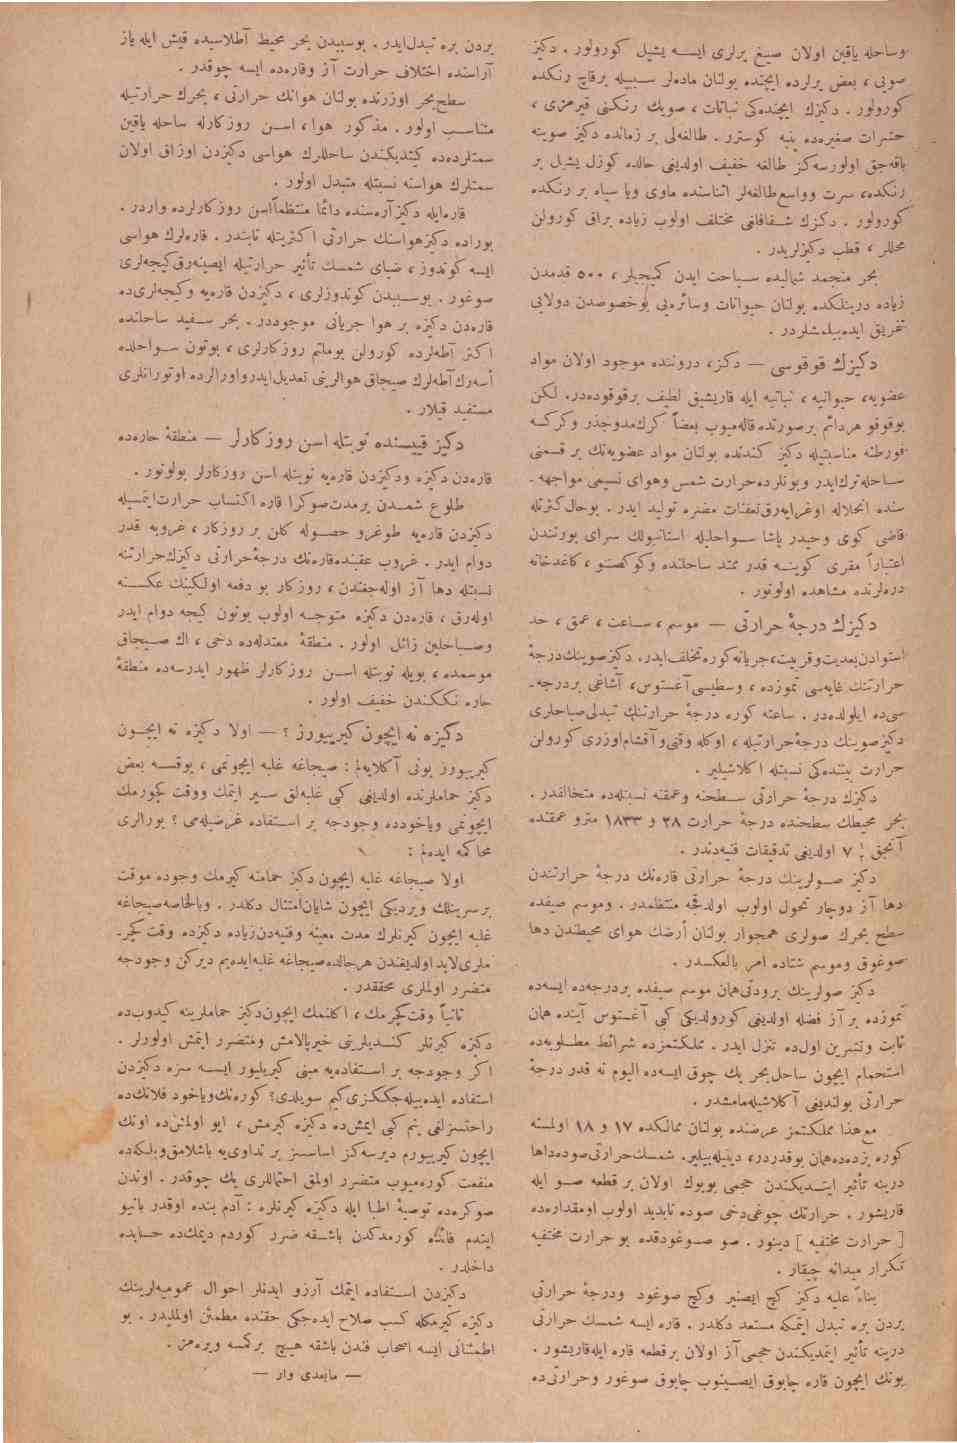 وساحله ياقين اولان صيغ برلرى ايسـه يشيل كورولور . دكيز
صويى ، بعض يرلرده ايچنده بولنان ماده‌لر سـببيله برقاچ رنكده
كورولور . دكيزك ايچنده‌كى نباتات ، صويك رنكينى قيرمزى ،
حشرات صغيره‌ده پنبه كوسترر . طالغه‌لى بر زمانده دكيز صوينه
باقه‌جق اولورسه‌كز طالغه خفيف اولديغى حالده كوزل يشيل بر
رنكده، سرت وواسع طالغه‌لر اثناسنده ماوى ويا سياه بر رنكده
كورولور . دكزك شـفافلغى مختلف اولوب زياده براق كورولن
محللر ، قطب دكيزلريدر .
بحر منجمد شماليده سـياحت ايدن كميجيلر ، ٥٠٠ قدمدن
زياده درينلكده بولنان حيوانات وسائره‌يى بوخصوصدن دولايى
تفريق ايده‌بيلمشلردر .
دكيزك قوقوسى — دكز، دروننده موجود اولان مواد
عضويه، حيوانيه ، نباتيه ايله قاريشيق لطيف برقوقوده‌در. لكن
بوقوقو هردائم برصورتده قاله‌ميوب بعضاً كرك‌مدوجذر وكركسه
فورطنه مناسبتيله دكيز كندنده بولنان مواد عضويه‌نك بر قسمنى
سـاحله ترك‌ايدر وبونلرده‌حرارت شمس وهواى نسيمى مواجهه‌ـ
سنده انحلاله اوغرايه‌رق‌تعفنات مضره توليد ايدر . بوحال‌كثرتله
قاضى كوى وحيدر پاشا سـواحليله استانبولك سراى بورنندن
اعتباراً مقرى كوينـه قدر ممتد ساحلنده وكوكصو ، كاغدخانه
دره‌لرنده مشاهده اولونور .
دكيزك درجهٔ حرارتى — موسم ، سـاعت ، عمق ، خط
استوادن‌بعديت‌وقربيت،جريانه‌كوره تخلف‌ايدر. دكيزصوينك‌درجهٔ
حرارتنك غايه‌سى تموزده ، وسطيسى آغستوس، آشاغى بردرجه‌ـ
سى‌ده ايلولده‌در . ساعته كوره درجهٔ حرارتنك تبدلى‌صباحلرى
دكيزصوينك درجهٔ‌حرارتيله ، اوكله وقتى‌وآقشام‌اوزرى كورولن
حرارت بيننده‌كى نسبتله اكلاشيلير .
دكيزك درجهٔ حرارتى سـطحنه وعمقنه نسبتله‌ده متخالفدر .
بحر محيطك سطحنده درجهٔ حرارت ٢٨ و ١٨٣٣ مترو عمقنده
آنجق ٧ اولديغى تدقيقات فنيه‌دندر .
دكيز صـولرينك درجهٔ حرارتى قاره‌نك درجهٔ حرارتندن
دها آز دوچار تحول اولوب اولدقجه منتظمدر . وموسم صيفده
سطح بحرك صولرى همجوار بولنان أرضك هواى محيطندن دها
صوغوق وموسم شتاده امر بالعكسدر .
دكيز صولرينك برودتى‌همان موسم صيفده بردرجه‌ده ايسه‌ده
تموزده بر آز فضله اولديغى كورولديكى كبى آغستوس آينده همان
ثابت وتشرين اول‌ده تنزل ايدر . مملكتمزده شرائط مطـلوبه‌ده
استحمام ايچون ساحل‌بحر پك چوق ايسه‌ده اليوم نه قدر درجهٔ
حرارتى بولنديغى آكلاشيله‌مامشدر .
مع‌هذا مملكتمز عرضنده بولنان ممالكده ١٧ و ١٨ اولمسنه
كوره بزده‌ده‌همان بوقدردر، دينيله‌بيلير. شمسك‌حرارتى‌صوده‌داها
درينه تأثير ايتـديكندن حجمى بويوك اولان بر قطعه صـو ايله
قاريشور . حرارتك چوغى‌دخى صوده نابديد اولوب اومقداره‌ده
[ حرارت مختفيه ] دينور . صو صـوغودقده بو حرارت مختفيه
تكرار ميدانه چيقار .
بناءً عليه دكيز كچ ايصنير وكچ صوغود ودرجهٔ حرارتى
بردن بره تبدل ايتمكه مستعد دكلدر . قاره ايسه شمسك حرارتى
درينه تأثير ايتمديكندن حجمى‌آز اولان برقطعه قاره ايله‌قاريشور .
بونك ايچون قاره چابوق ايصـينوب چابوق صوغور وحرارتى‌ده
بردن بره تبدل‌ايدر . بوسببدن بحر محيط آطلاسيده قيش ايله ياز
آراسنده اختلاف حرارت آز وقاره‌ده ايسه چوقدر .
سطح‌بحر اوزرنده بولنان هوانك حرارتى ، بحرك حرارتيله
متناسـب اولور . مذكور هوا ، اسـن روزكارلره ساحله ياقين
سمتلرده‌ده كيتديكندن ساحللرك هواسى دكيزدن اوزاق اولان
سمتلرك هواسنه نسبتله متبدل اولور .
قاره‌ايله دكيزآره‌سنده دائما منتظماًاسن روزكارلرده واردر .
بوراده دكيزهواسنك حرارتى اكثريتله ثابتدر . قاره‌لرك هواسى
ايسه كوندوز ، ضياى شمسك تأثير حرارتيله ايصينه‌رق‌كيجه‌لرى
صوغور . بوسـببدن كوندوزلرى ، دكيزدن قاره‌يه وكيجه‌لرى‌ده
قاره‌دن دكيزه بر هوا جريانى موجوددر . بحر سـفيد ساحلنده
اكثر آطه‌لرده كورولن بوملتم روزكارلرى ، بوتون سـواحلده
أسه‌رك‌آطه‌لرك صيجاق هوالرينى تعديل‌ايدرواورالرده اوتورانلرى
مستفيد قيلار .
دكيز قييسنده نوبتله اسن روزكارلر — منطقهٔ حاره‌ده
قاره‌دن دكيزه ودكيزدن قاره‌يه نوبتله اسن روزكارلر بولونور .
طلوع شمـدن برمدت‌صوكرا قاره اكتساب حرارت‌ايتمسيله
دكيزدن قاره‌يه طوغرو حصـوله كلن بر روزكار ، غروبه قدر
دوام ايدر . غروب عقبنده‌قاره‌نك درجهٔ‌حرارتى دكيزك‌حرارتنه
نسبتله دها آز اوله‌جغندن ، روزكار بو دفعه اولكينك عكسـنه
اوله‌رق ، قاره‌دن دكيزه متوجـه اولوب بوتون كيجه دوام ايدر
وصـباحلين زائل اولور . منطقهٔ معتدله‌ده دخى ، اك صـيجاق
موسمده ، بويله نوبتله اسـن روزكارلر ظهور ايدرسه‌ده منطقهٔ
حاره نككندن خفيف اولور .
دكيزه نه ايچون كيرييورز ؟ — اولا دكيزه نه ايچـون
كيرييورز بونى آكلايه‌لم : صيجاغه غلبه ايچونمى ، يوقسـه بعض
دكيز حماملرنده اولديغى كبى غلبه‌لق سـير ايتمك ووقت كچورمك
ايچونمى وياخودده وجودجه بر اسـتفاده غرضيله‌مى ؟ بورالرى
محاكمه ايده‌لم :
اولا صيجاغه غلبه ايچون دكيز حمامنه كيرمك وجوده موقت
برسرينلك ويرديكى ايچون شايان‌امتثال دكلدر . وبالخاصه‌صيجاغه
غلبه ايچون كيرنلرك مدت معينه وفنيه‌دن‌زياده دكيزده وقت كچير‌ـ
ملرى‌لابد اولديغندن هرحالده‌صيجاغه غلبه‌ايده‌يم ديركن وجودجه
متضرر اولملرى محققدر .
ثانياً وقت‌كچرمك ، اكلنمك ايچون‌دكيز حماملرينه كيدوب‌ده
دكيزه كيرنلر كنـديلرينى خيرپالامش ومتضرر ايتمش اولورلر .
اكر وجودجه بر اسـتفاده‌يه مبنى كيريليور ايسـه سزه دكيزدن
استفاده ايده‌بيله‌جككزى‌كيم سويلدى؟ كوره‌نك‌وياخود فلانك‌ده
راحتسزلغى بنم كبى ايمش‌ده دكيزه كيرمش ، ايو اولمش‌ده اونك
ايچون كيرييورم ديرسه‌كز اساسـز بر تداوى‌يه باشلامق‌وبلكه‌ده
منفعت كوره‌ميوب متضرر اولمق احتماللرى پك چوقدر . اوندن
صوكره‌ده توصيهٔ اطبا ايله دكيزه كيرنلره : آدم بنده اوقدر بانيو
ايتدم فائده كورمدكدن باشـقه ضرر كوردم ديمك‌ده حسابده
داخلدر .
دكزدن اسـتفاده ايتمك آرزو ايدنلر احوال عموميه‌لرينك
دكيزه كيرمكله كسب صلاح ايده‌جكى حقنده مطمئن اولمليدر . بو
اطمئنانى ايسه اصحاب فندن باشقه هيـچ بركمسه ويره‌مز .
— مابعدى وار —